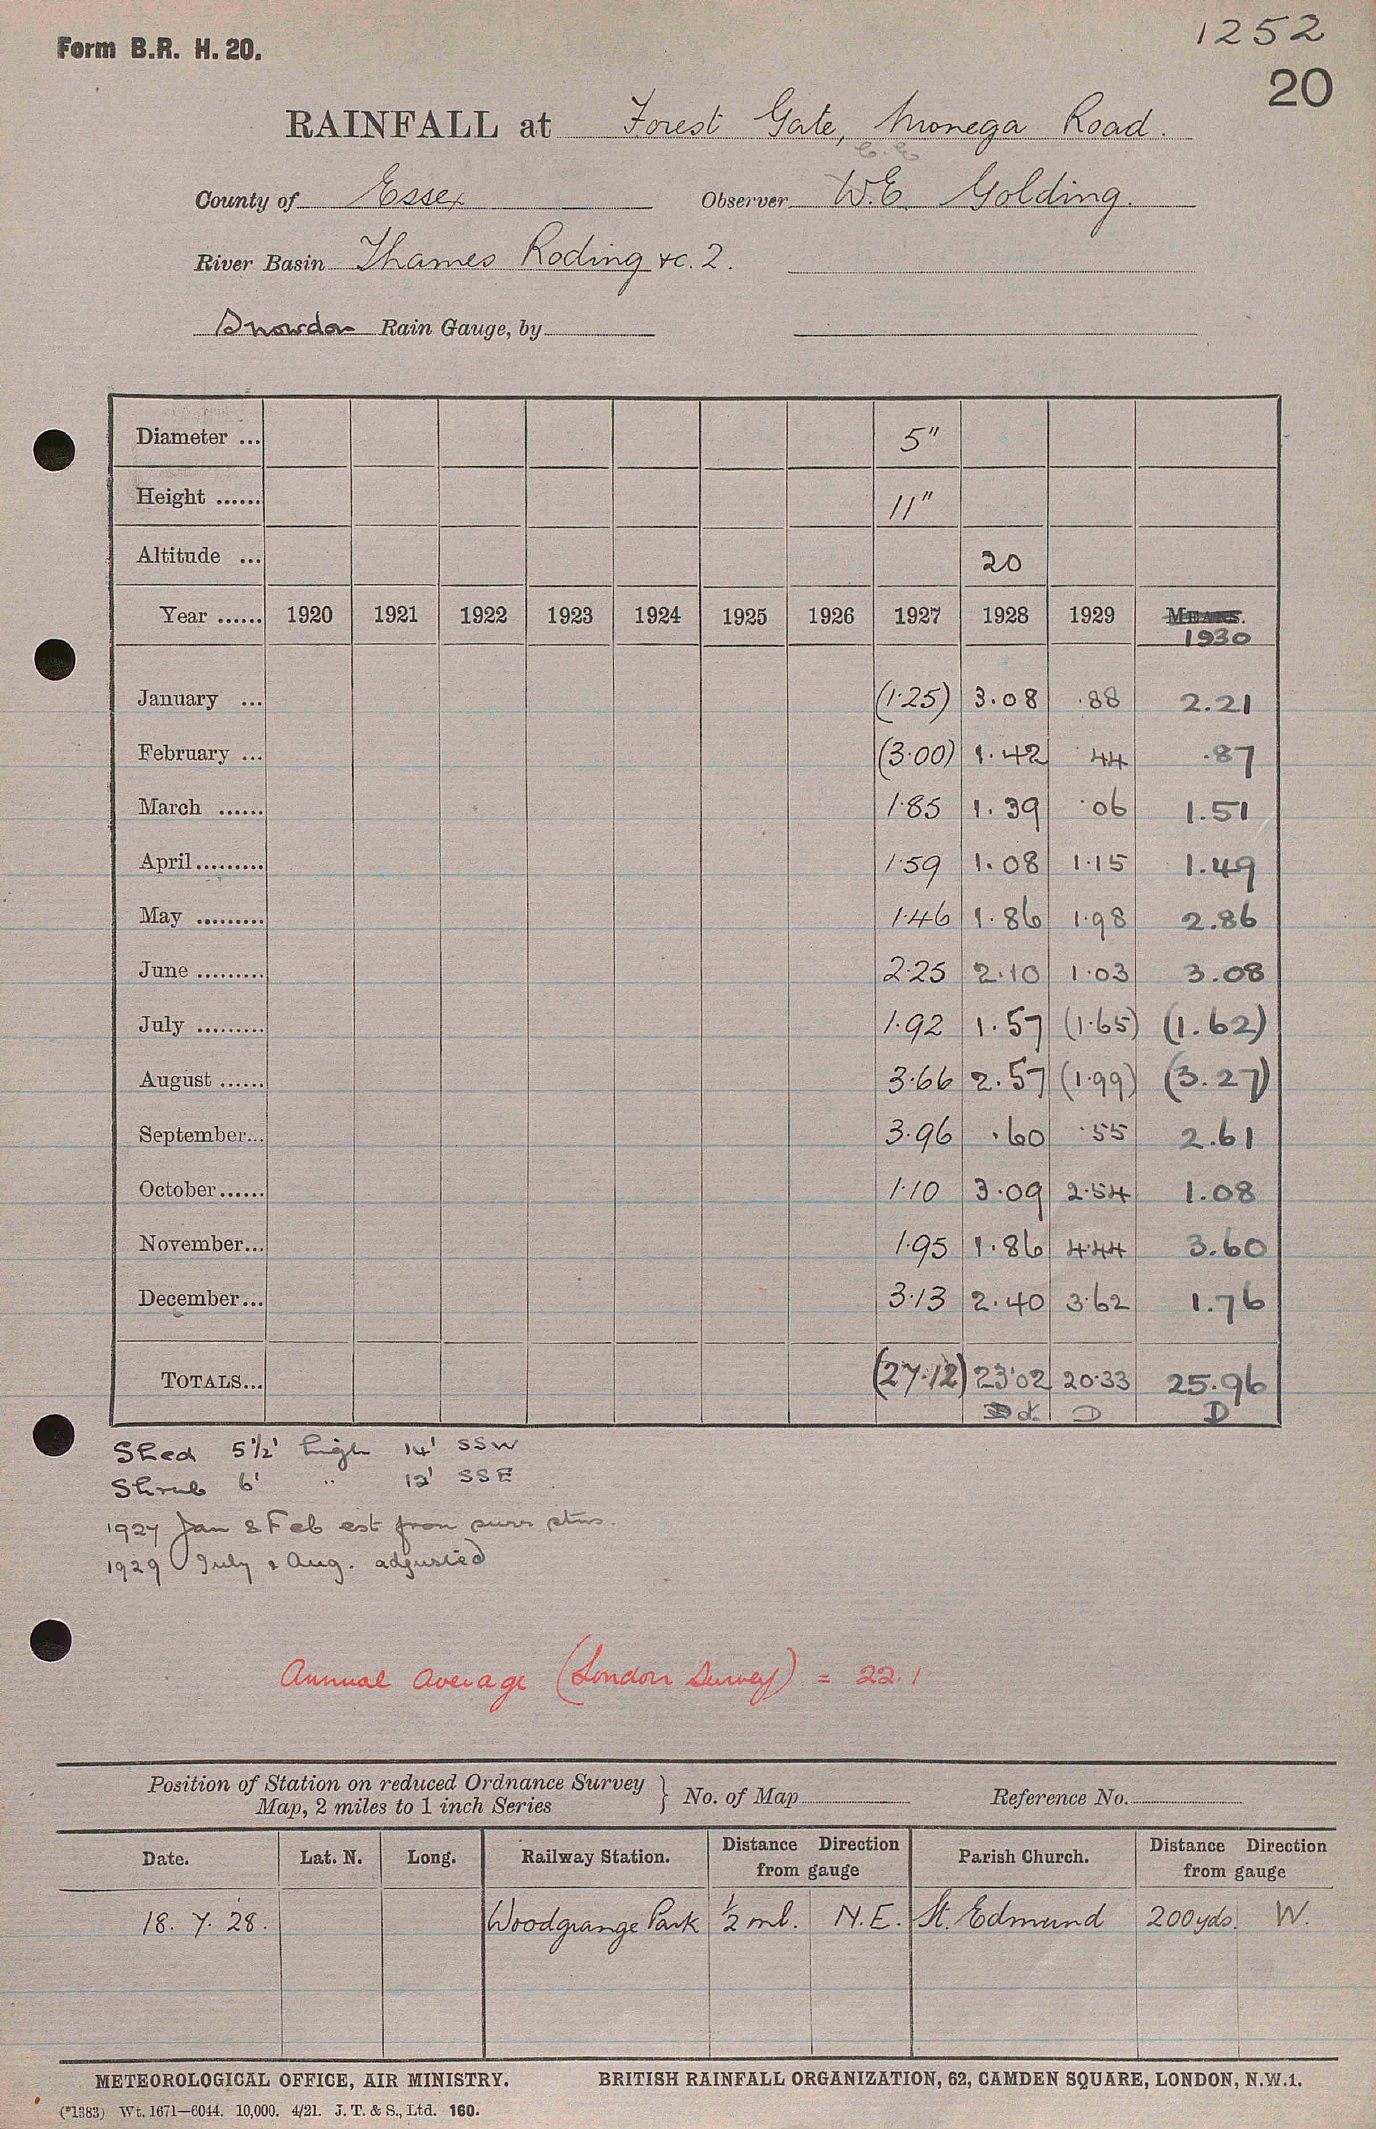 1252
Form B.R. H. 20.
20
RAINFALL at Forest Gate, Monega Road.
C. E.
County of Essex Observer W.E. Golding.
River Basin Thames Roding &c. 2.
Snowdon Rain Gauge, by
Diameter ... 5"
Height ...... 11"
Altitude ... 20
Year ...... 1920 1921 1922 1923 1924 1925 1926 1927 1928 1929 MEANS.
1930
January ... (1.25) 3.08 .88 2.21
February ... (3.00) 1.42 .44 .87
March ...... 1.85 1.39 .06 1.51
April ......... 1.59 1.08 1.15 1.49
May ......... 1.46 1.86 1.98 2.86
June ......... 2.25 2.10 1.03 3.08
July ......... 1.92 1.57 (1.65) (1.62)
August ...... 3.66 2.57 (1.99) (3.27)
September... 3.96 .60 .55 2.61
October...... 1.10 3.09 2.54 1.08
November... 1.95 1.86 4.44 3.60
December... 3.13 2.40 3.62 1.76
TOTALS... (27.12) 23.02 20.33 25.96
D D
Shed 5½' high 14' SSW
Shrub 6' " 12' SSE
1927 Jan & Feb est from surr stns.
1929 July & Aug. adjusted
Annual Average (London Survey) = 22.1
Position of Station on reduced Ordnance Survey
Map, 2 miles to 1 inch Series } No. of Map Reference No.
Date. Lat. N. Long. Railway Station. Distance Direction from gauge Parish Church. Distance Direction from gauge
18. 7. 28. Woodgrange Park ½ ml. N.E. St. Edmund 200yds. W.
METEOROLOGICAL OFFICE, AIR MINISTRY. BRITISH RAINFALL ORGANIZATION, 62, CAMDEN SQUARE, LONDON, N.W.1.
(*1383) Wt. 1671—6044. 10,000. 4/21. J. T. & S., Ltd. 160.